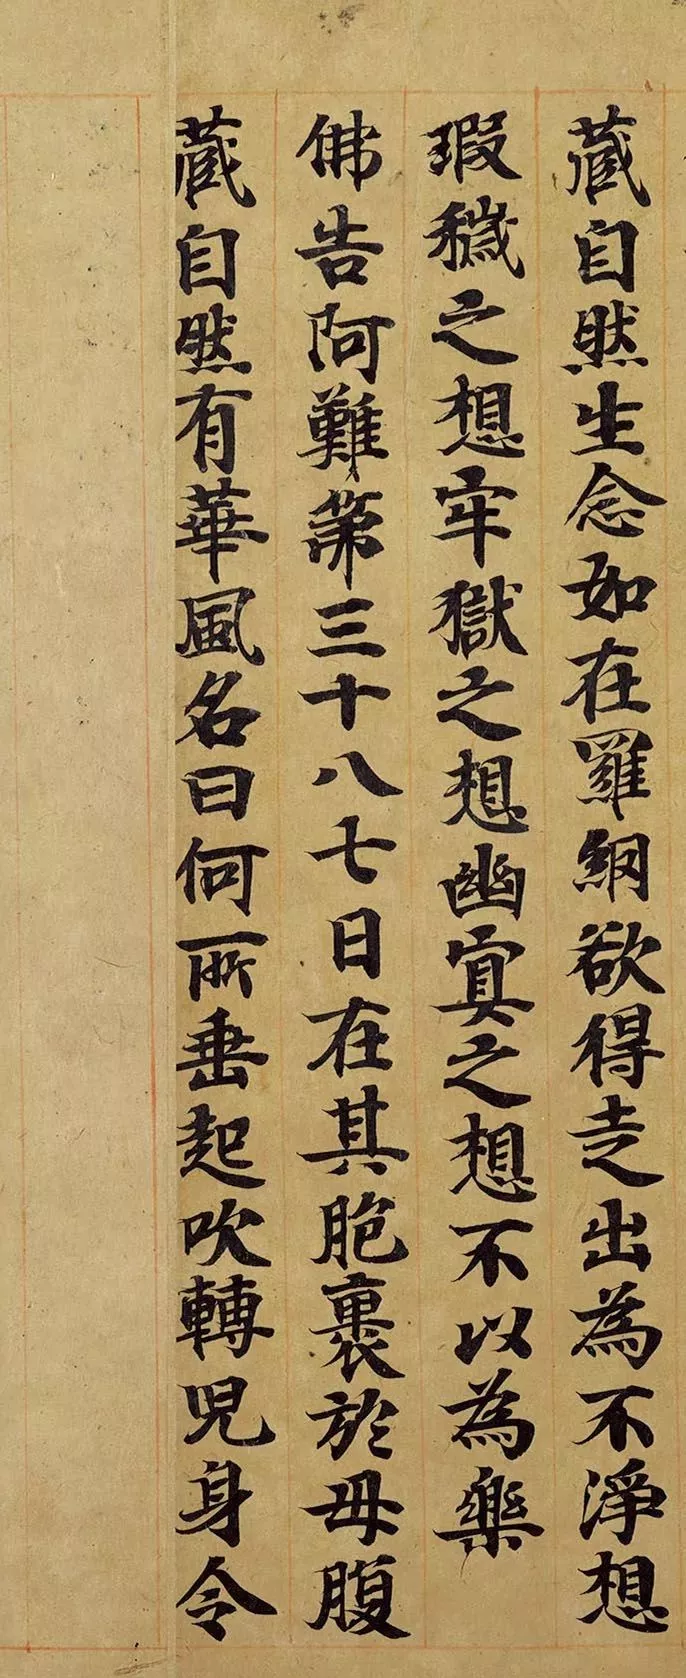 藏自然生念如在羅網欲得走出為不淨想
瑕穢之想牢獄之想幽冥之想不以為樂
佛告阿難第三十八七日在其胞裏於母腹
藏自然有華風名曰何所垂起吹轉兒身令